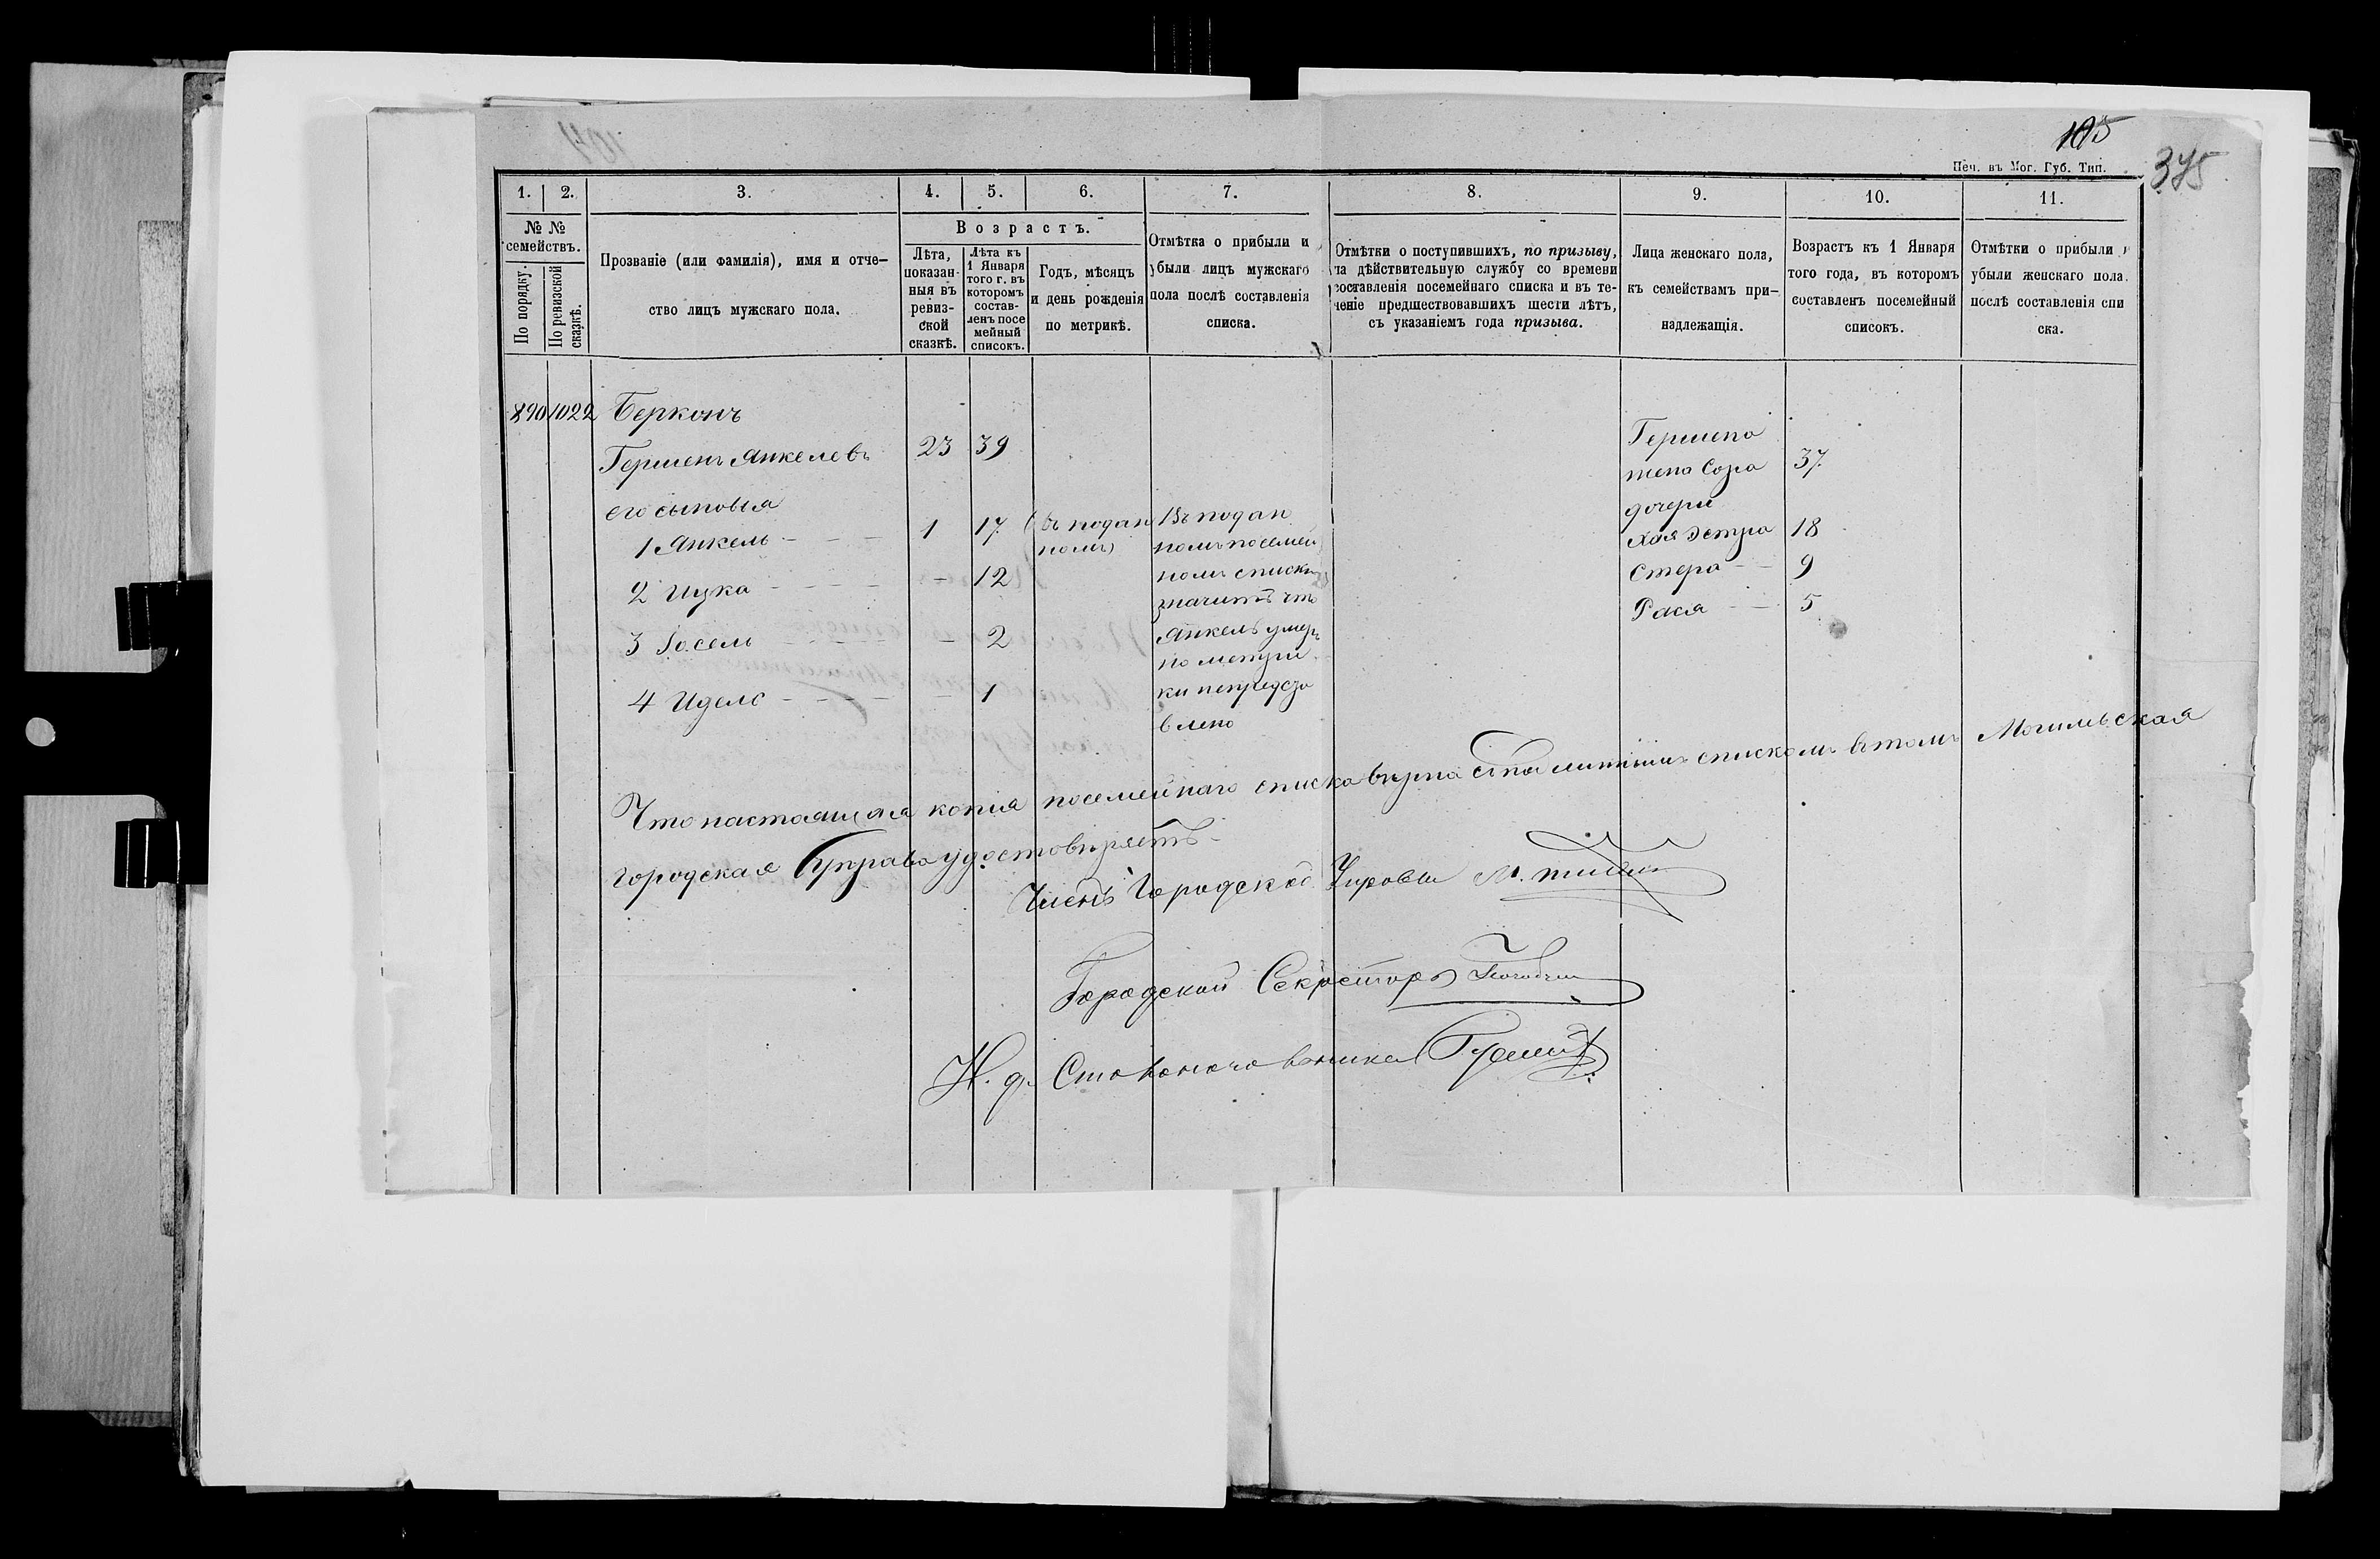 105
375
Печ. въ Мог. Губ. Тип.
1. 2. 3. 4. 5. 6. 7. 8. 9. 10. 11.
№ №
семействъ.
По порядку.
По ревизской
сказкѣ.
Прозваніе (или фамилія), имя и отче-
ство лицъ мужскаго пола.
Возрастъ.
Лѣта,
показан-
ныя въ
ревиз-
ской
сказкѣ.
Лѣта къ
1 Января
того г. въ
которомъ
состав-
ленъ посе
мейный
списокъ.
Годъ, мѣсяцъ
и день рожденія
по метрикѣ.
Отмѣтка о прибыли и
убыли лицъ мужскаго
пола послѣ составленія
списка.
Отмѣтки о поступившихъ, по призыву,
на дѣйствительную службу со времени
составленія посемейнаго списка и въ те-
ченіе предшествовавшихъ шести лѣтъ,
съ указаніемъ года призыва.
Лица женскаго пола,
къ семействамъ при-
надлежащія.
Возрастъ къ 1 Января
того года, въ которомъ
составленъ посемейный
списокъ.
Отмѣтки о прибыли и
убыли женскаго пола
послѣ составленія спи
ска.
890 1022 Берконъ
Гершенъ Янкелевъ 23 39
его сыновья
1 Янкель - - - 1 17 (въ подан
номъ)
2 Ицка - - - - - 12
3 Іосель - - - - - 2
4 Идель - - - - - 1
Въ подан
номъ посемей
номъ списки
значитъ что
Янкель умеръ
но метри
ки непредста
влено
Гершена
жена Сора 37
дочери
Хая Эстра 18
Стера - - 9
Рася - - 5
Что настоящая копія посемейнаго списка вѣрна съ подлиннымъ спискомъ въ томъ Могилевская
городская Управа удостовѣряетъ.
Членъ Городской Управы М.
Городской Секретарь
И. д. Столоначальника